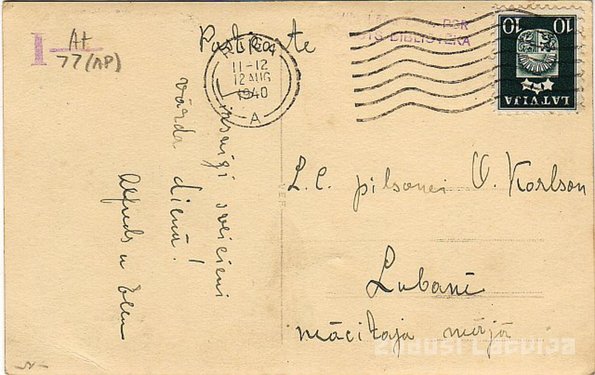 I At
77 (AP)
Pastkarte
11-12
12 AUG
1940
A
PSR
BIBLIOTĒKA
10 10
LATVIJA
Sirsnīgi sveicieni
vārda dienā!
Alfreds u Elli
L. C. pilsonei O. Karlson
Lubanē
mācītaja mājā
ZUDUSI LATVIJA